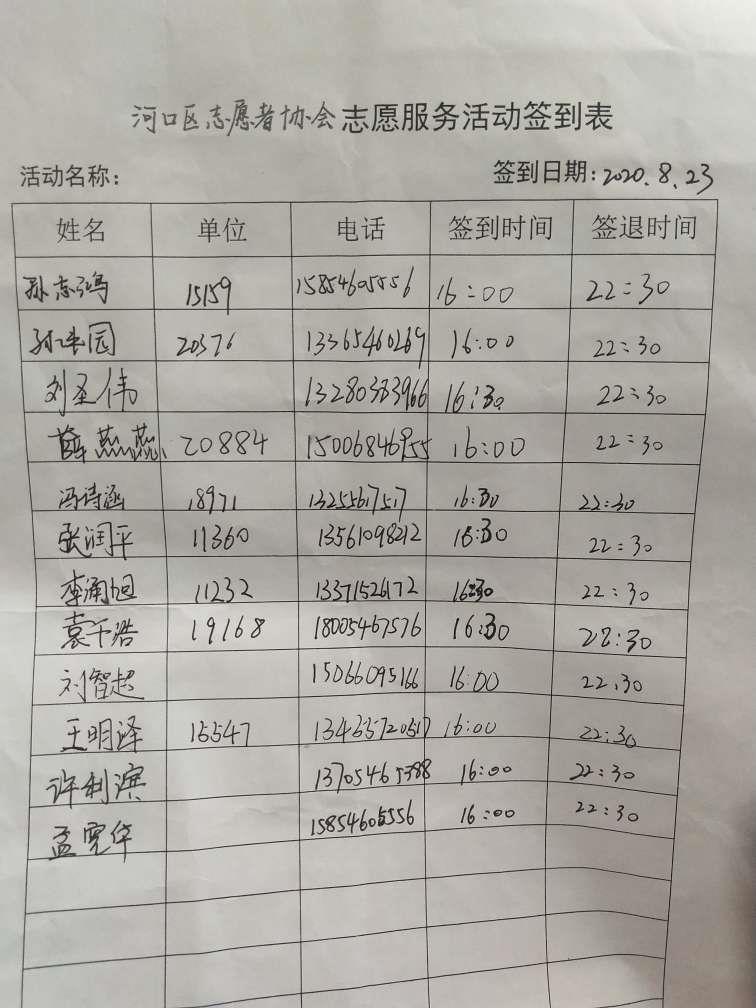 河口区志愿者协会志愿服务活动签到表
活动名称： 签到日期：2020.8.23
姓名 单位 电话 签到时间 签退时间
孙志鸿 15159 15854605556 16:00 22:30
20376 13365460269 16:00 22:30
刘圣伟 13280333966 16:30 22:30
薛燕燕 20884 15006846955 16:00 22:30
冯诗涵 18971 13255617517 16:30 22:30
张润平 11360 13561098212 16:30 22:30
李涌旭 11232 13371526172 16:30 22:30
袁千浩 19168 18005467576 16:30 22:30
刘智超 15066095166 16:00 22:30
王明泽 15547 13465720517 16:00 22:30
许利滨 13705465388 16:00 22:30
孟宪华 15854605556 16:00 22:30